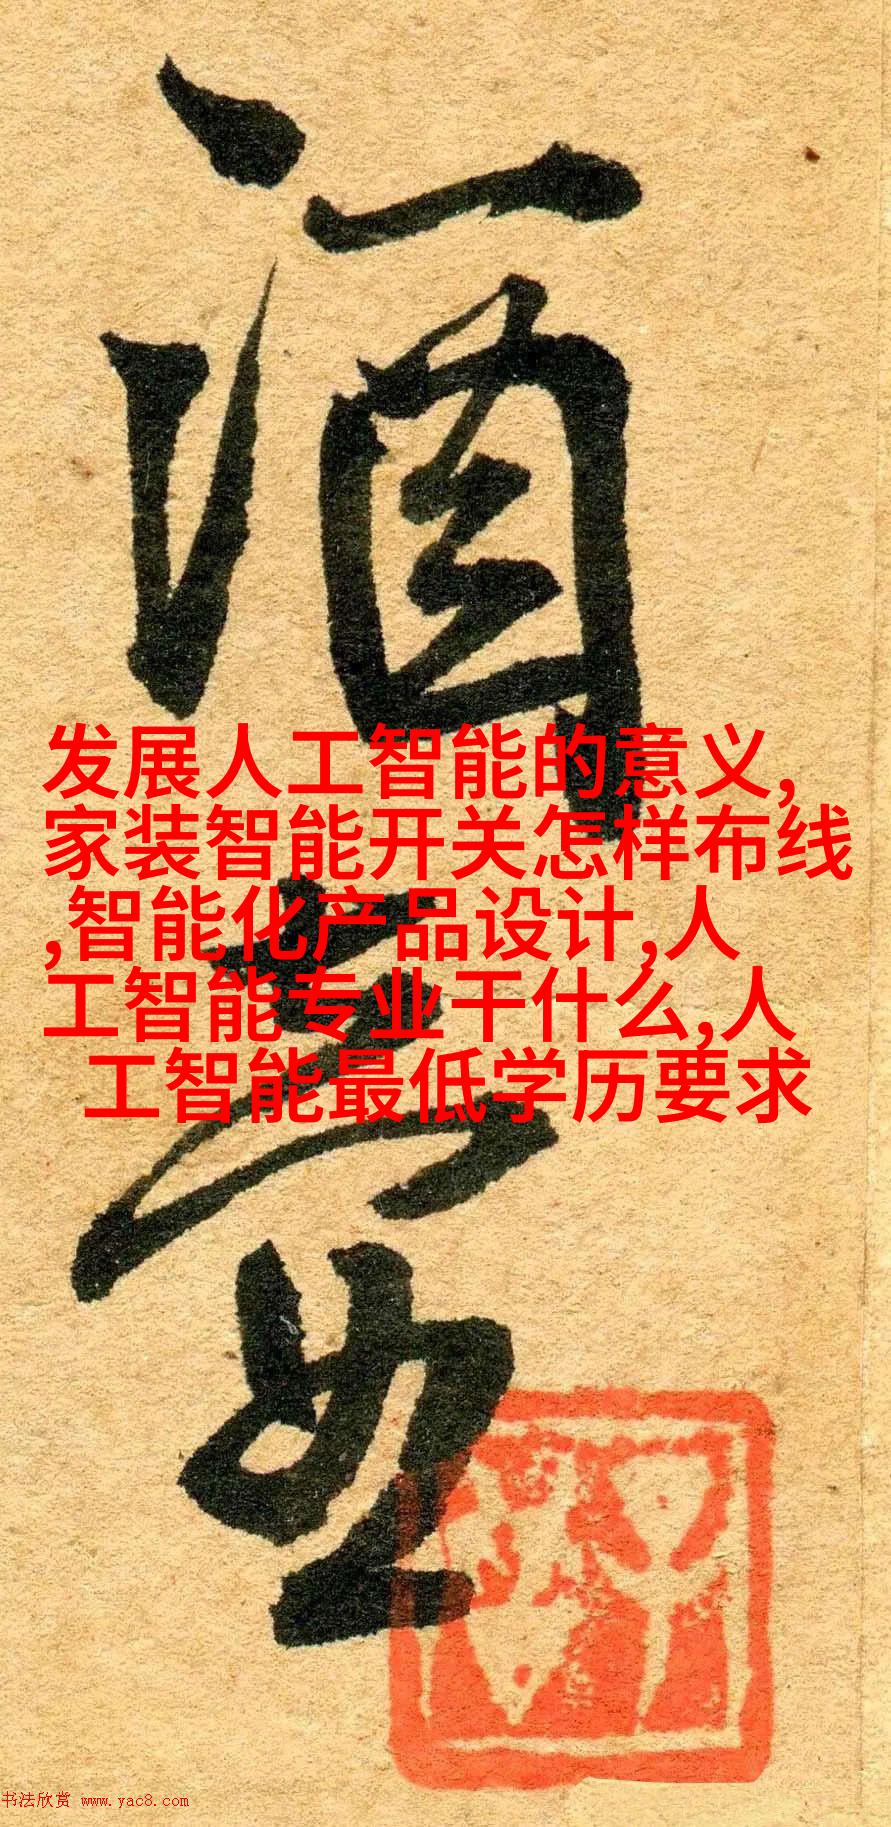 酒
发展人工智能的意义,
家装智能开关怎样布线
,智能化产品设计,人
工智能专业干什么,人
工智能最低学历要求
书法欣赏 www.yac8.com